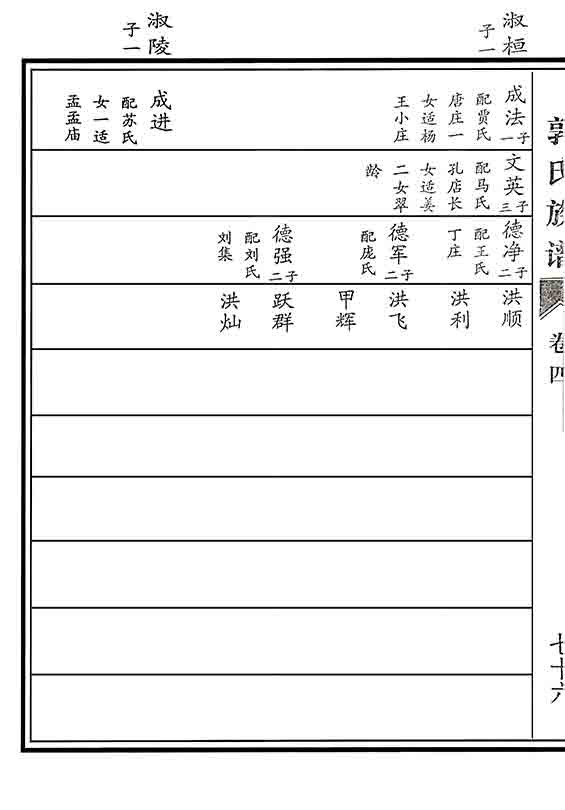 郭氏族谱
卷四
七十六
淑桓
子一
淑陵
子一
成法
一子
配贾氏
唐庄一
女适杨
王小庄
成进
配苏氏
女一适
孟孟庙
文英
三子
配马氏
孔店长
女适姜
二女翠
龄
德净
二子
配王氏
丁庄
德军
二子
配庞氏
德强
二子
配刘氏
刘集
洪顺
洪利
洪飞
甲辉
跃群
洪灿